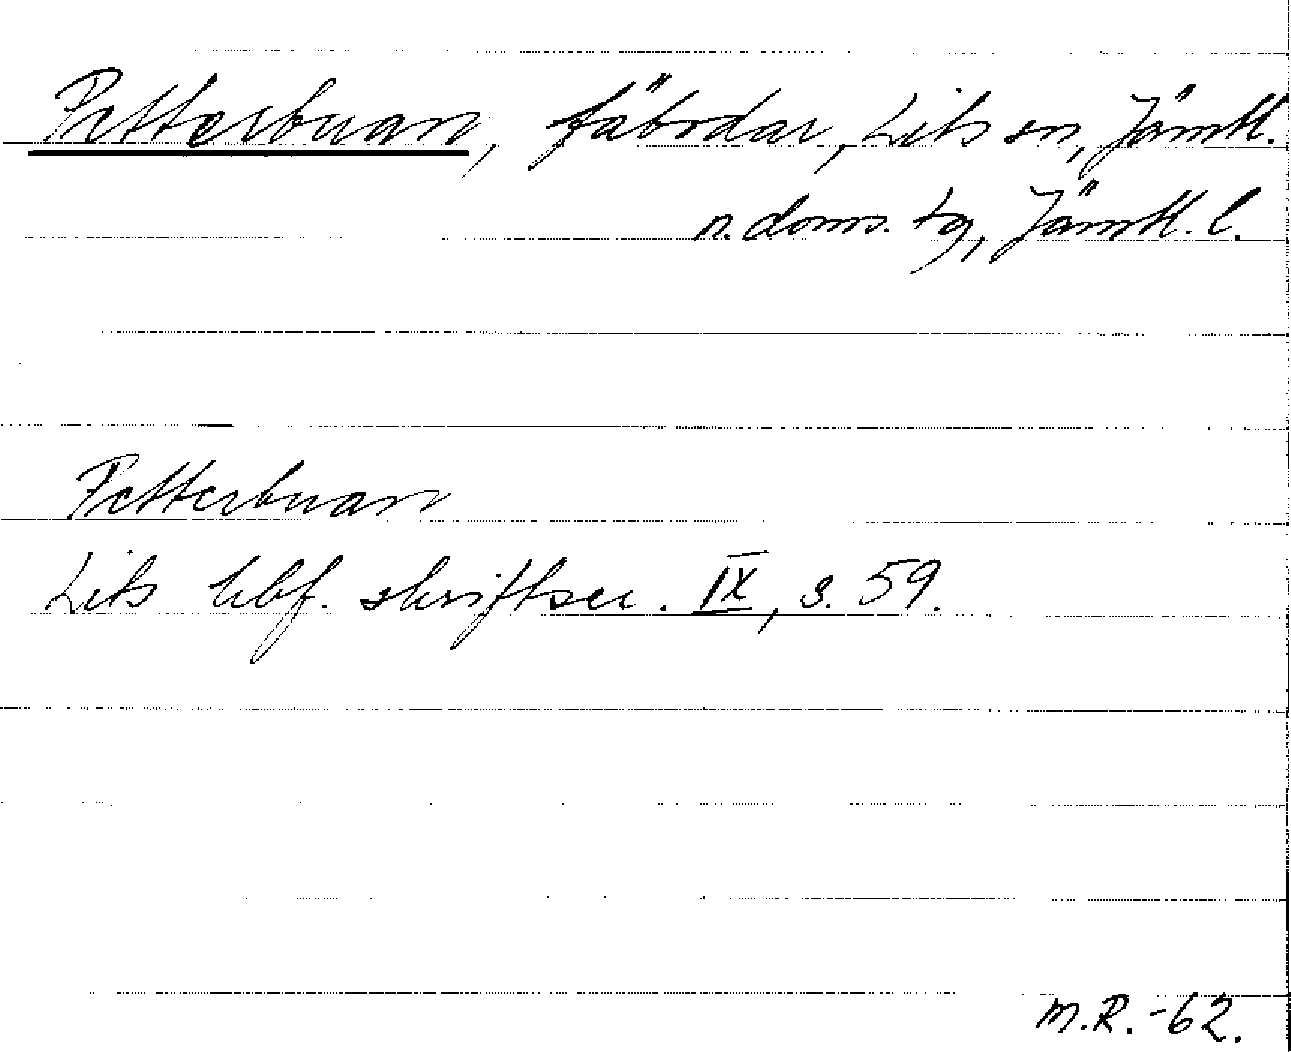 Petterbuan, fäbodar, Lits sn, Jämtl.
n. doms. tg, Jämtl. l.
Petterbuan
Lits hbf. skriftser. IX, s. 59.
M.R. -62.